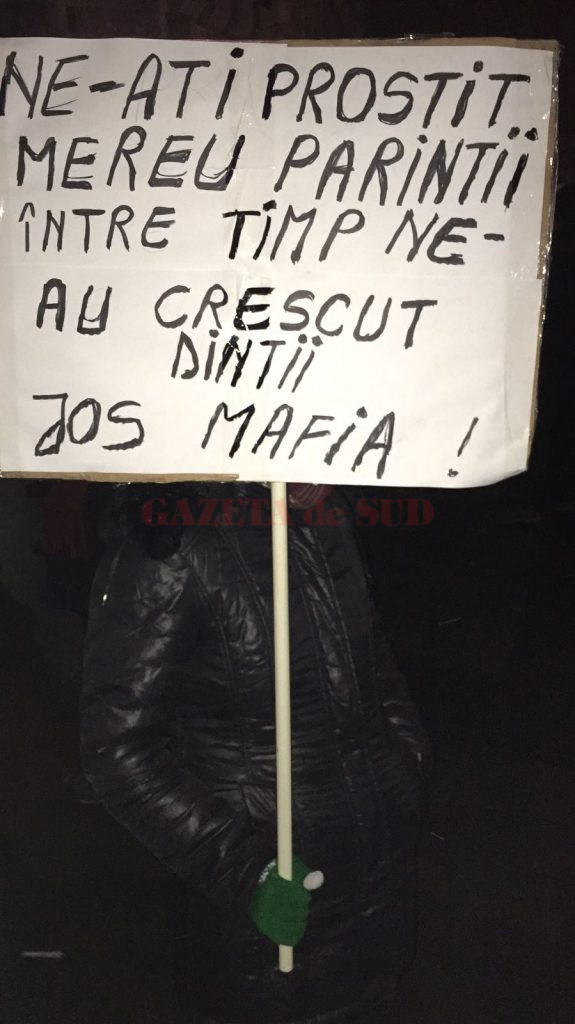 NE-ATi PROSTiT
MEREU PARiNTii
îNTRE TiMP NE-
AU CRESCUT
DiNTii
JOS MAFiA !
GAZETA de SUD